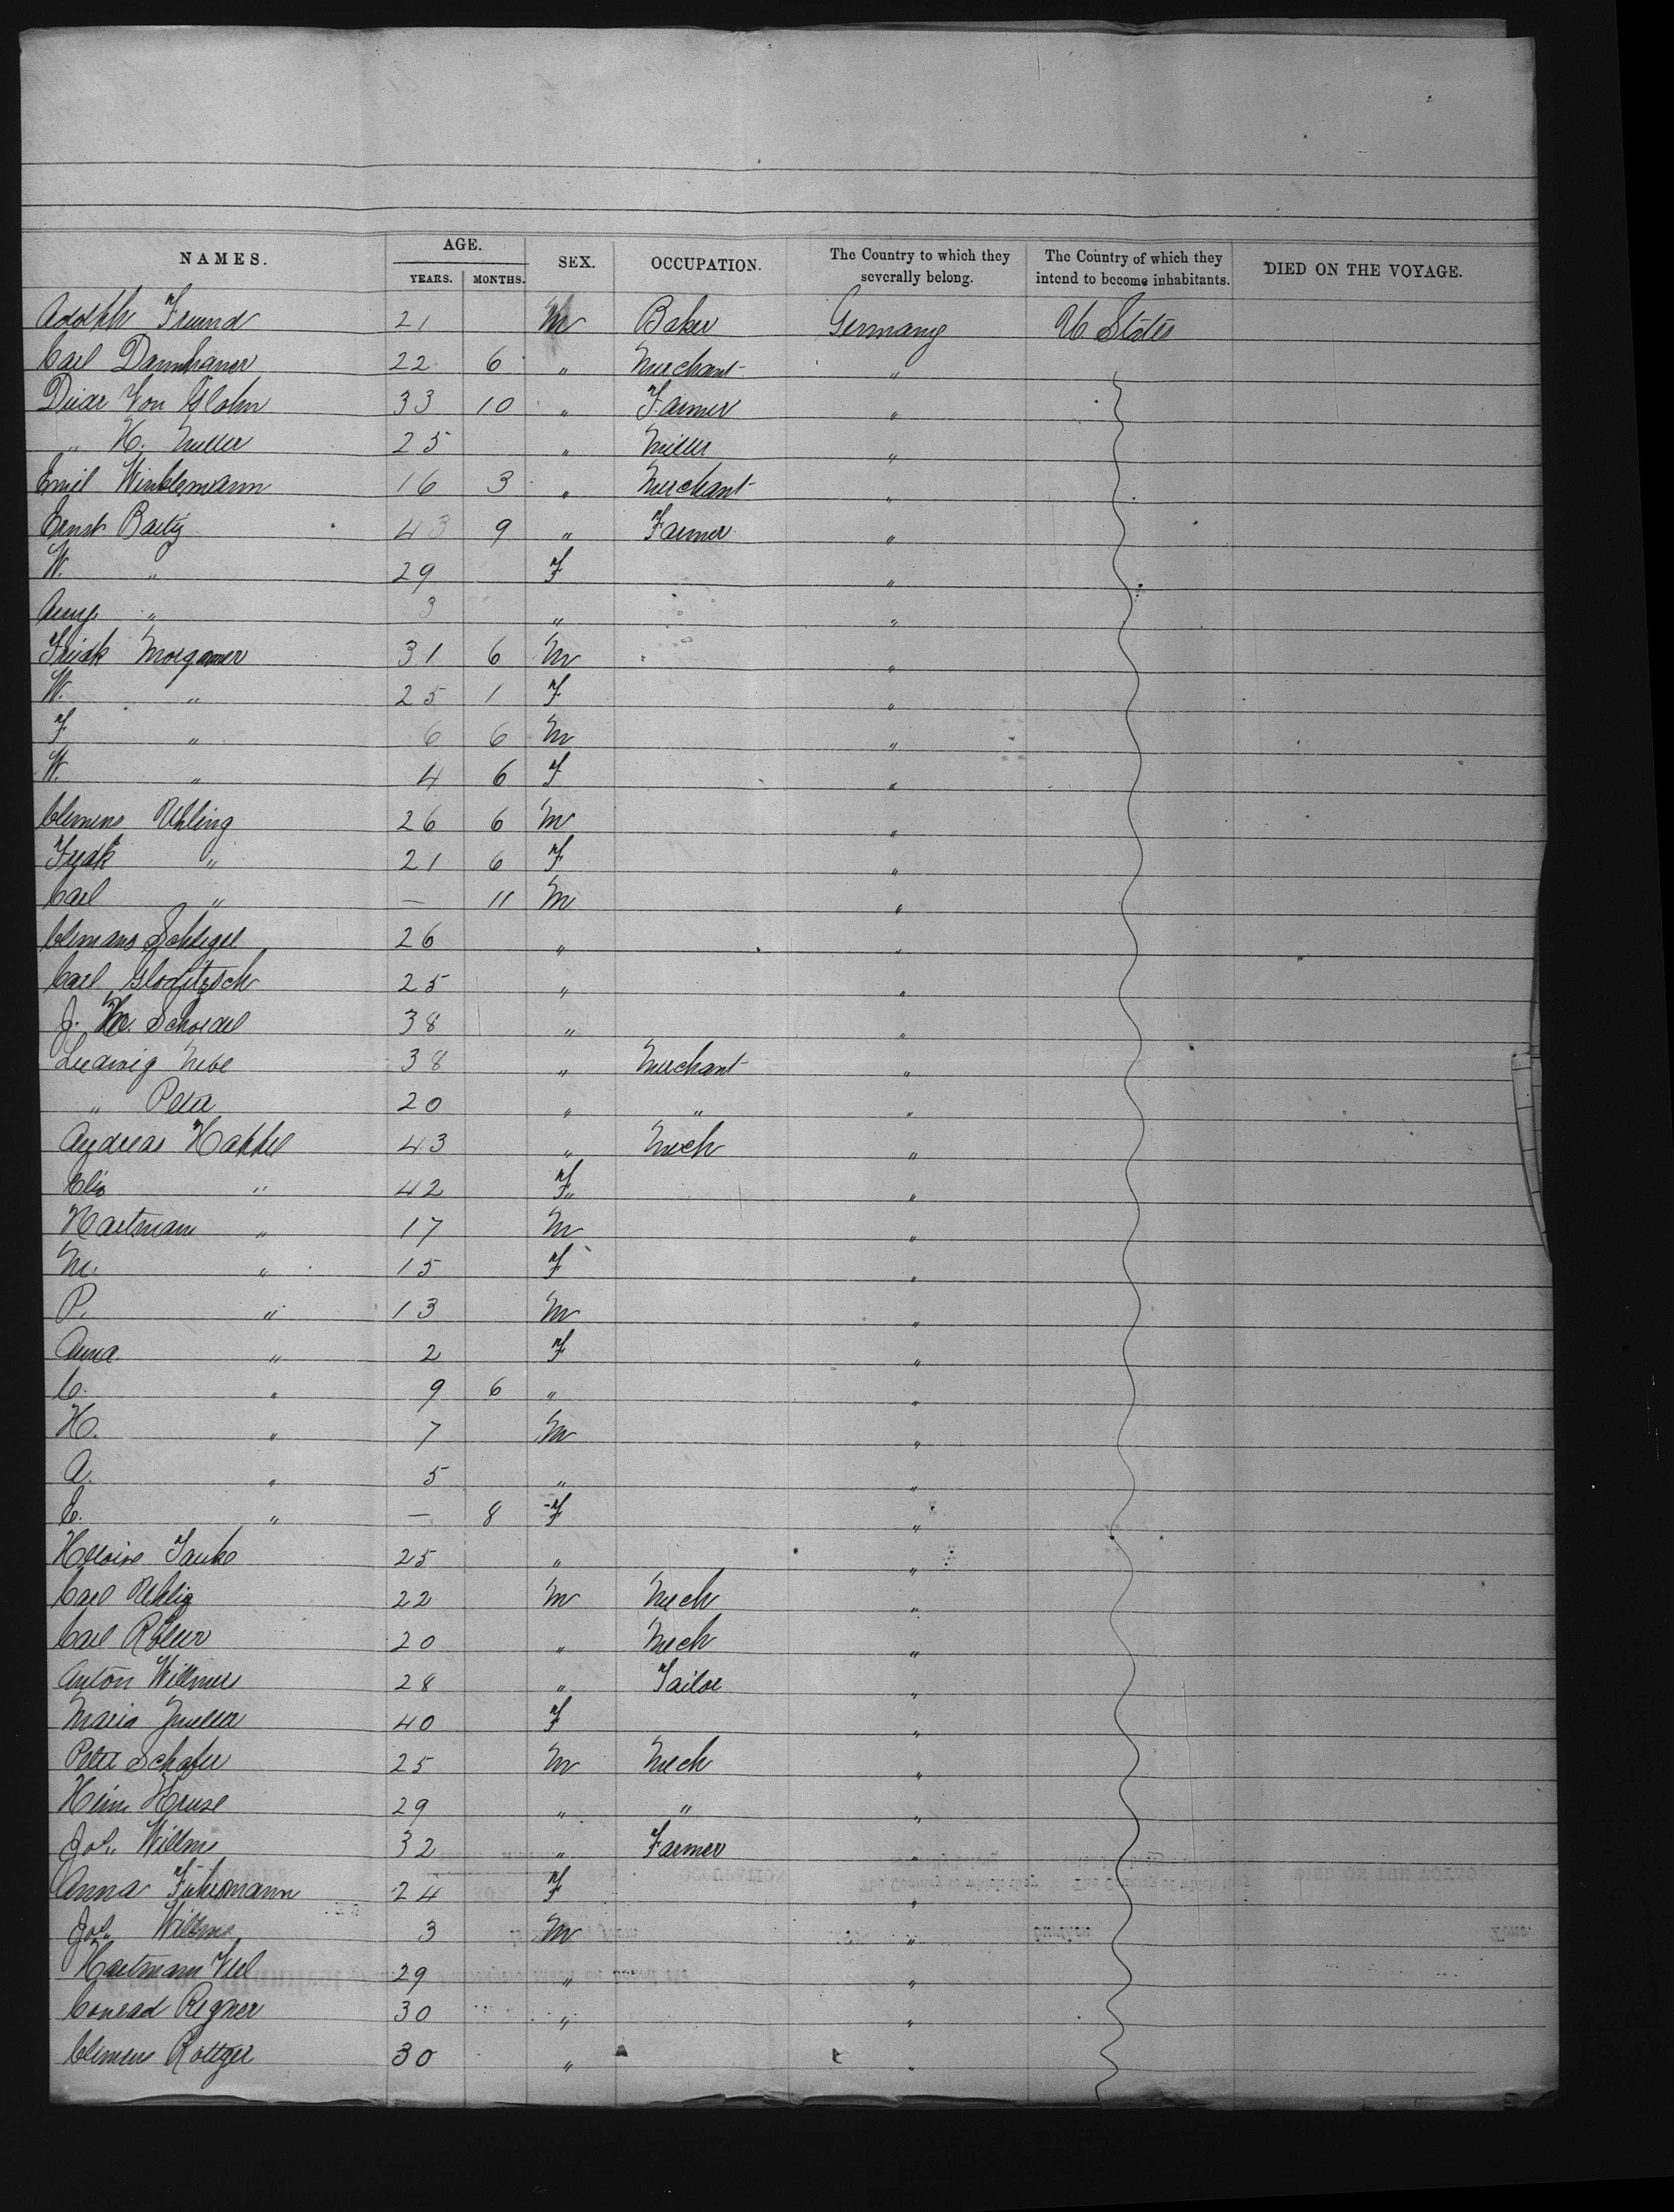 NAMES. AGE. SEX. OCCUPATION. The Country to which they severally belong. The Country of which they intend to become inhabitants. DIED ON THE VOYAGE.
YEARS. MONTHS.
Adolph Freund 21 M Baker Germany U. States
Carl Dannhauer 22 6 " Merchant "
Von Glahn 33 10 " Farmer "
" H. Muller 25 " Miller "
Emil Winklemann 16 3 " Merchant "
Ernst Baetz 43 9 " Farmer "
W. " 29 F "
Aug. " 3 " "
Friedk Morganer 31 6 M "
W. " 25 1 F "
F " 6 6 M "
W. " 4 6 F "
Clemens Uhling 26 6 M "
Fredk " 21 6 F "
Carl " — 11 M "
Clemans Schlegel 26 " "
Carl Gloditzsch 25 " "
J. M. Schoedel 38 " "
Ludwig Nebe 38 " Merchant "
" Peter 20 " " "
Andreas Happel 43 " Mech "
Elis " 42 F "
Hartmann " 17 M "
M. " 15 F "
P. " 13 M "
Anna " 2 F "
C. " 9 6 " "
H. " 7 M "
A. " 5 " "
E. " — 8 F "
25 " "
Carl Uhlig 22 M Mech "
Carl 20 " Mech "
Anton Willmer 28 " Tailor "
Maria Mueller 40 F "
Peter Schafer 25 M Mech "
Hein Kruse 29 " " "
Joh. Willms 32 " Farmer "
Anna Fuhrmann 24 F "
Joh. Willms 3 M "
Hartmann Viel 29 " "
Conrad Regner 30 " "
Clemens Rottger 30 " "